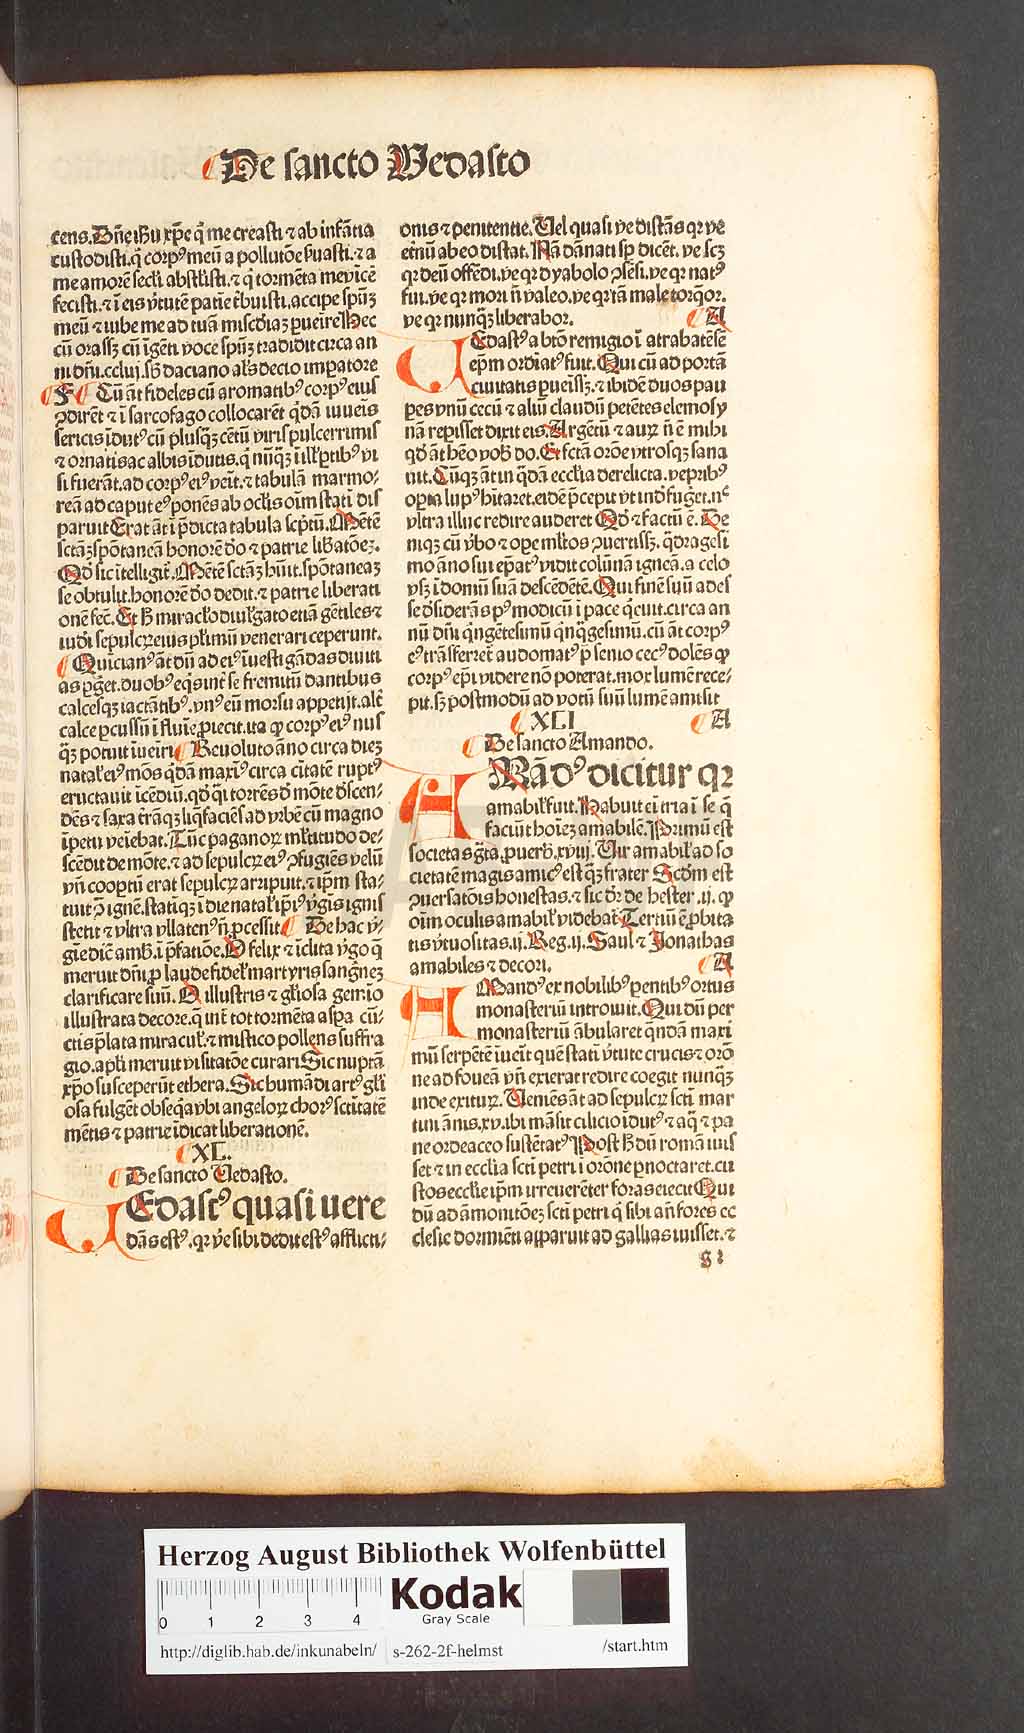 De sancto Vedasto
cens. Dn̄e ih̄u xp̄e q̇ me creasti ⁊ ab infātia
custodisti. q̇ corpꝰ meū a pollutōe ẜuasti. ⁊ a
me amorē secľi abstľisti. ⁊ q̇ tormēta me vīcē
fecisti. ⁊ ī eis v̇tutē patiētͥbuisti. accipe spūꝫ
meū ⁊ iube me ad tuā miscd̓iaꝫ pueīre Hec
cū orassꝫ cū īgēti voce spūꝫ tradidit circa an
ni dn̄i. ccliij. sb̓ daciano al̓s decio impatore
F Cū āt fideles cū aromatibꝰ corpꝰ eius
ꝯdirēt ⁊ ī sarcofago collocarēt q̇dā iuueis
sericis īdutꝰ cū plusqꝫ cētū viris pulcerrimis
⁊ ornatis ac albis īdutis. q̇ nūqꝫ ī ill̓ ptibꝰ vi
si fuerāt. ad corpꝰ eiꝰ veīt. ⁊ tabulā marmo⸗
reā ad caput eꝰ ponēs ab ocľis oīm statī dis
paruit Erat āt ī p̄dicta tabula sc̓ptū. Mētē
sctāꝫ spōtaneā honorē do ⁊ patrie lib̓atōeꝫ.
Qd sic ītelligit̓. Mētē sctāꝫ hūit. spōtaneaꝫ
se obtulit. honorē do dedit. ⁊ patrie liberati
onē fec̄. Et h̓ miracľo diuľgato etiā gētiles ⁊
iudi sepulcꝝ eius plͥmū venerari ceperunt.
Quīcianꝰ āt dū ad eiꝰ īuestigādas diuiti
as pg̓et. duobꝰ eq̇s int̓ se fremitū dantibus
calcesqꝫ iactātibꝰ. vnꝰ eū morsu appetijt. alt̓
calce pcussū ī fluīe piecit. ita ꝙ corpꝰ eiꝰ nus
qꝫ potuit īueiri Reuoluto āno circa dieꝫ
natal̓ eiꝰ mōs q̇dā maxīꝰ circa ciītatē ruptꝰ
eructauit īcēdiū. qd̓ q̇i torrēs d̓ mōte d̓scen⸗
dēs ⁊ saxa t̓rāqꝫ liq̄faciēs ad vrbē cū magno
īpetu veīebat. Tūc paganoꝝ mľtitudo de⸗
scēdit de mōte. ⁊ ad sepulcꝝ eiꝰ ꝯfugiēs velū
vn̄ cooptū erat sepulcꝝ arripuit. ⁊ ip̄m sta⸗
tuit ꝯ ignē. statīqꝫ ī die natal̓ ip̄iꝰ v̓gis ignis
stetit ⁊ vltra vllatenꝰ n̄ pcessit De hac v̓⸗
gīe dīc̄ amb̓. ī p̄fatiōe. O felix ⁊ īclita v̓go q̄
meruit dn̄i p̱ laude fidel̓ martyris sang̓neꝫ
clarificare suū. O illustris ⁊ gľiosa gemīo
illustrata decore. q̄ int̓ tot tormēta aspa cū⸗
ctis p̄lata miracul̓. ⁊ mistico pollens suffra
gio. apľi meruit visitatōe curari Sic nuptā
xp̄o susceperūt ethera. Sic humādi artꝰ gľi
osa fulgēt obseq̇a vbi angeloꝝ chorꝰ sctitatē
mētis ⁊ patrie īdicat liberationē.
XL.
De sancto Vedasto.
VEdastꝰ quasi vere
dās estꝰ. qꝛ v̓e sibi dedit estꝰ afflicti⸗
onis ⁊ penitentie. Vel quasi ve distās qꝛ ve
et̓nū ab eo distat. Nā dānati sp̱ dicēt. ve scꝫ
qꝛ deū offēdi. ve qꝛ dyabolo ꝯsēsi. ve qꝛ natꝰ
fui. ve qꝛ mori n̄ valeo. ve qꝛ tā male torq̄or.
ve qꝛ nunqꝫ liberabor. A
VEdastꝰ a btō remigio ī atrabatēsē
ep̄m ordīatꝰ fuit. Qui cū ad portā
ciuitatis pueīssꝫ. ⁊ ibidē duos pau
pes vnū cecū ⁊ aliū claudū petētes elemosy
nā repisset dixit eis. Argētū ⁊ auꝝ n̄ ē mihi
qd̓ āt hēo vob̓ do. Et fctā orōe vtrosqꝫ sana
uit. Cūqꝫ āt in q̇dā ecclia derelicta. vepribꝰ
opta lupꝰ hītaret. eidē p̄cepit vt inde fug̓et. nᶜ
vltra illuc redire auderet Qd̓ ⁊ factū ē. De
niqꝫ cū v̓bo ⁊ ope mľtos ꝯuertissꝫ. q̇dragesi
mo āno sui ep̄atꝰ vidit colūnā igneā. a celo
vsqꝫ ī domū suā descēdētē. Qui finē suū ades
se d̓siderās pꝰ modicū ī pace q̇euit. circa an
nū dn̄i q̇ngētesimū q̇nq̇gesimū. cū āt corpꝰ
eꝰ trāsferret̓ audomatꝰ p̄ senio cecꝰ dolēs ꝙ
corpꝰ ep̄i videre nō poterat. mox lumē rece⸗
pit. sꝫ postmodū ad votū suū lumē amisit
XLI A
De sancto Amando.
AMādꝰ dicitur qꝛ
amabil̓ fuit. Habuit eī tria ī se q̄
faciūt hoīeꝫ amabilē. Primū est
societas gͣta. puerb̓. xviij. Vir amabil̓ ad so
cietatē magis amicꝰ est qꝫ frater Scd̓m est
ꝯuersatōis honestas. ⁊ sic dr̄ de hester. ij. ꝙ
oīm oculis amabil̓ videbat̓. Tertiū ē pbita
tis v̓tuositas. ij. Reg. ij. Saul ⁊ Jonathas
amabiles ⁊ decori. A
AMandꝰ ex nobilibꝰ parentibꝰ ortus
monasteriū introiuit. Qui dū per
monasteriū ābularet q̄ndā maxi
mū serpētē īueīt quē statī v̓tute crucis ⁊ orō
ne ad foueā vn̄ exierat redire coegit nunqꝫ
inde exituꝝ. Veniēs āt ad sepulcꝝ scti mar
tini ānis. xv. ibi māsit cilicio īdutꝰ ⁊ aq̄ ⁊ pa
ne ordeaceo sustētatꝰ Post h̓ dū romā iuis
set ⁊ in ecclia scti petri ī orōne pnoctaret. cu
stos ecclie ip̄m irreuerēter foras eiecit Qui
dū ad āmonitōeꝫ scti petri q̇ sibi an̄ fores ec
clesie dormiēti apparuit ad gallias iuisset. ⁊
S 2
Herzog August Bibliothek Wolfenbüttel
0 1 2 3 4
Kodak
Gray Scale
http://diglib.hab.de/inkunabeln/ s-262-2f-helmst /start.htm